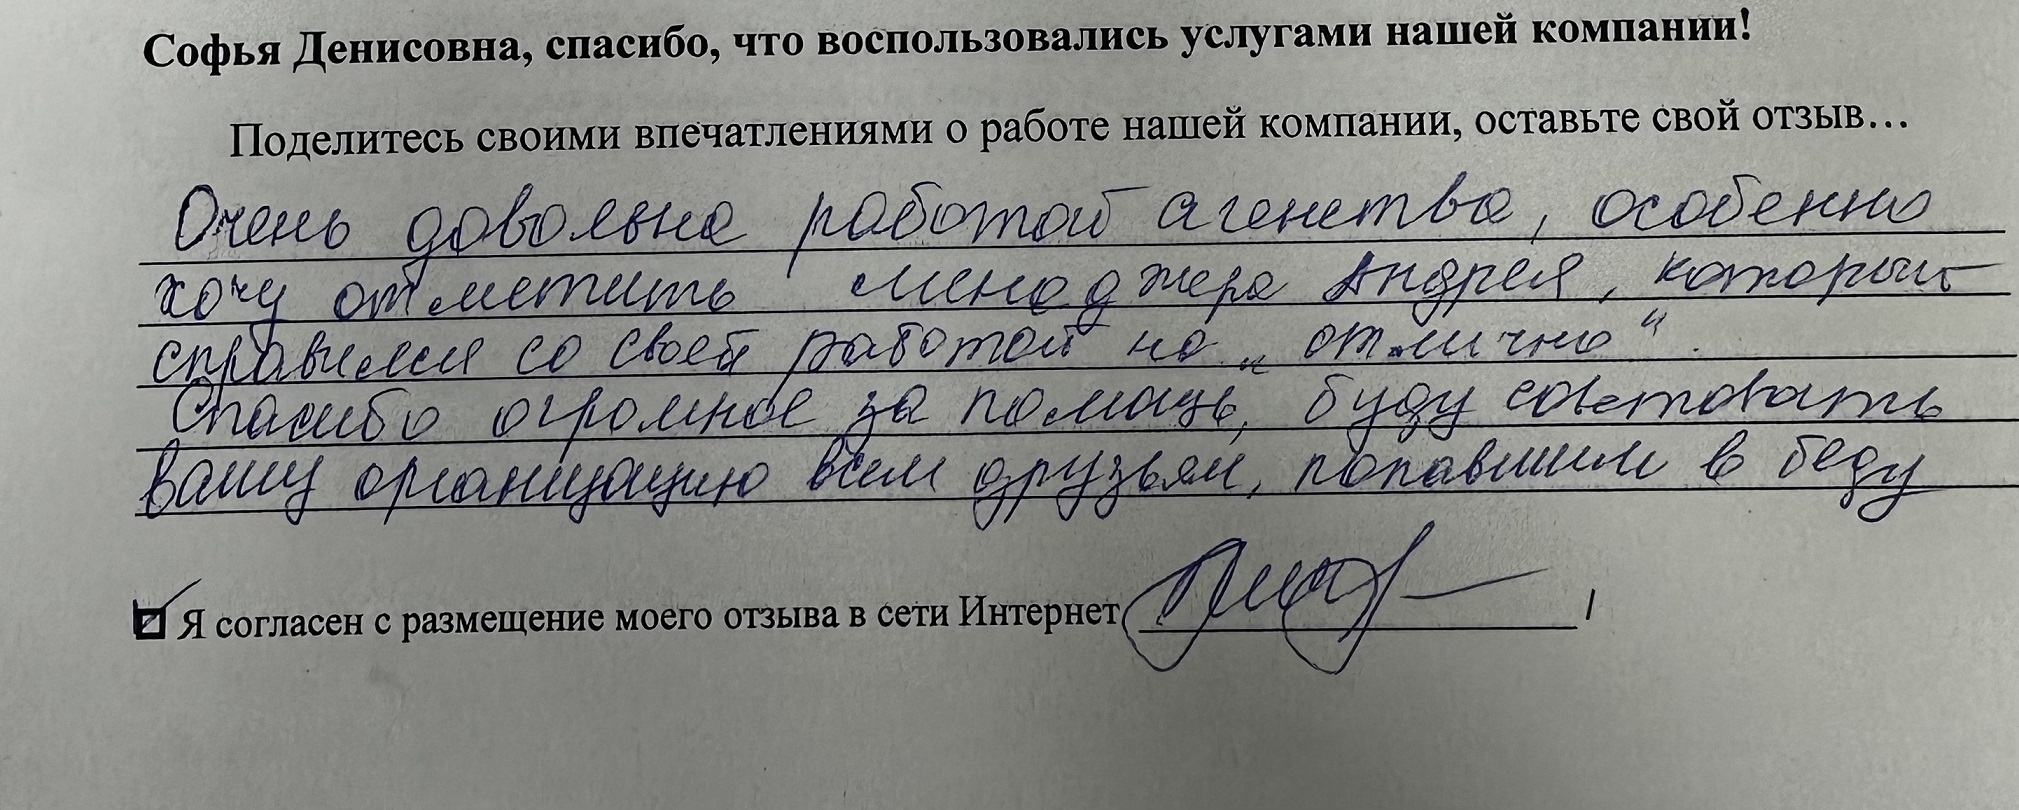 Софья Денисовна, спасибо, что воспользовались услугами нашей компании!
Поделитесь своими впечатлениями о работе нашей компании, оставьте свой отзыв…
Очень довольна работой агенства, особенно
хочу отметить менеджера Андрея, который
справился со своей работой на „отлично“.
Спасибо огромное за помощь, буду советовать
вашу организацию всем друзьям, попавшим в беду
Я согласен с размещение моего отзыва в сети Интернет